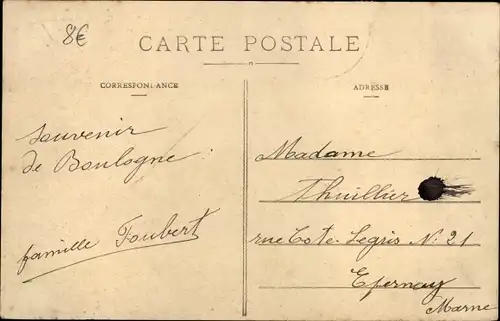 8€
CARTE POSTALE
CORRESPONDANCE
Souvenir
de Boulogne
famille Foubert
ADRESSE
Madame
Thuillier
rue Cote-Legris N: 21
Epernay
Marne